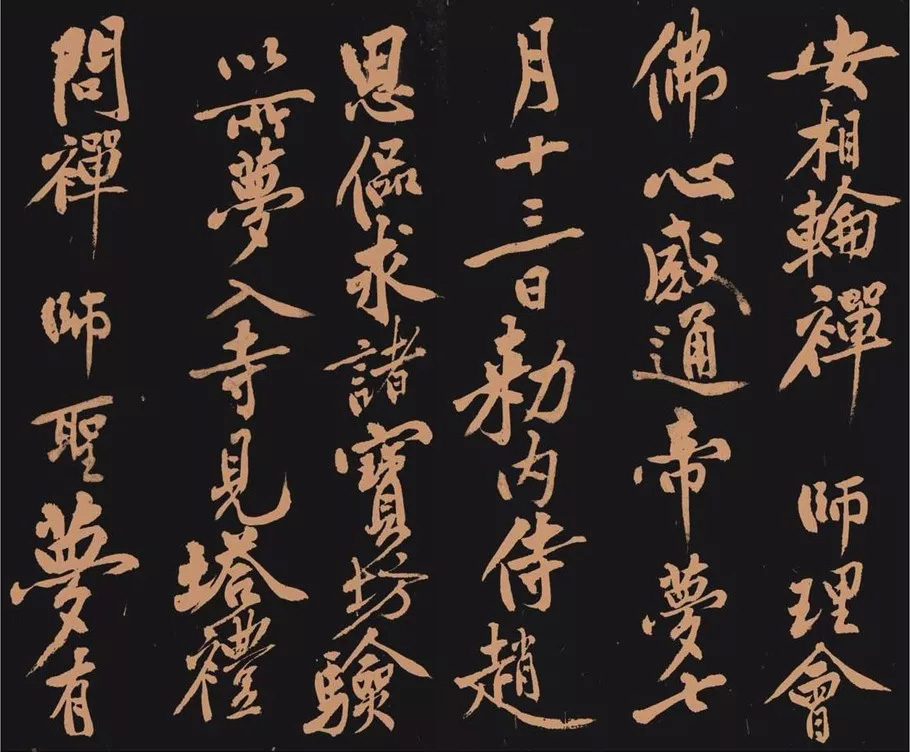 安相輪禪師理會
佛心感通帝夢七
月十三日勅内侍趙
思偘求諸寶坊驗
以所夢入寺見塔禮
問禪師聖夢有